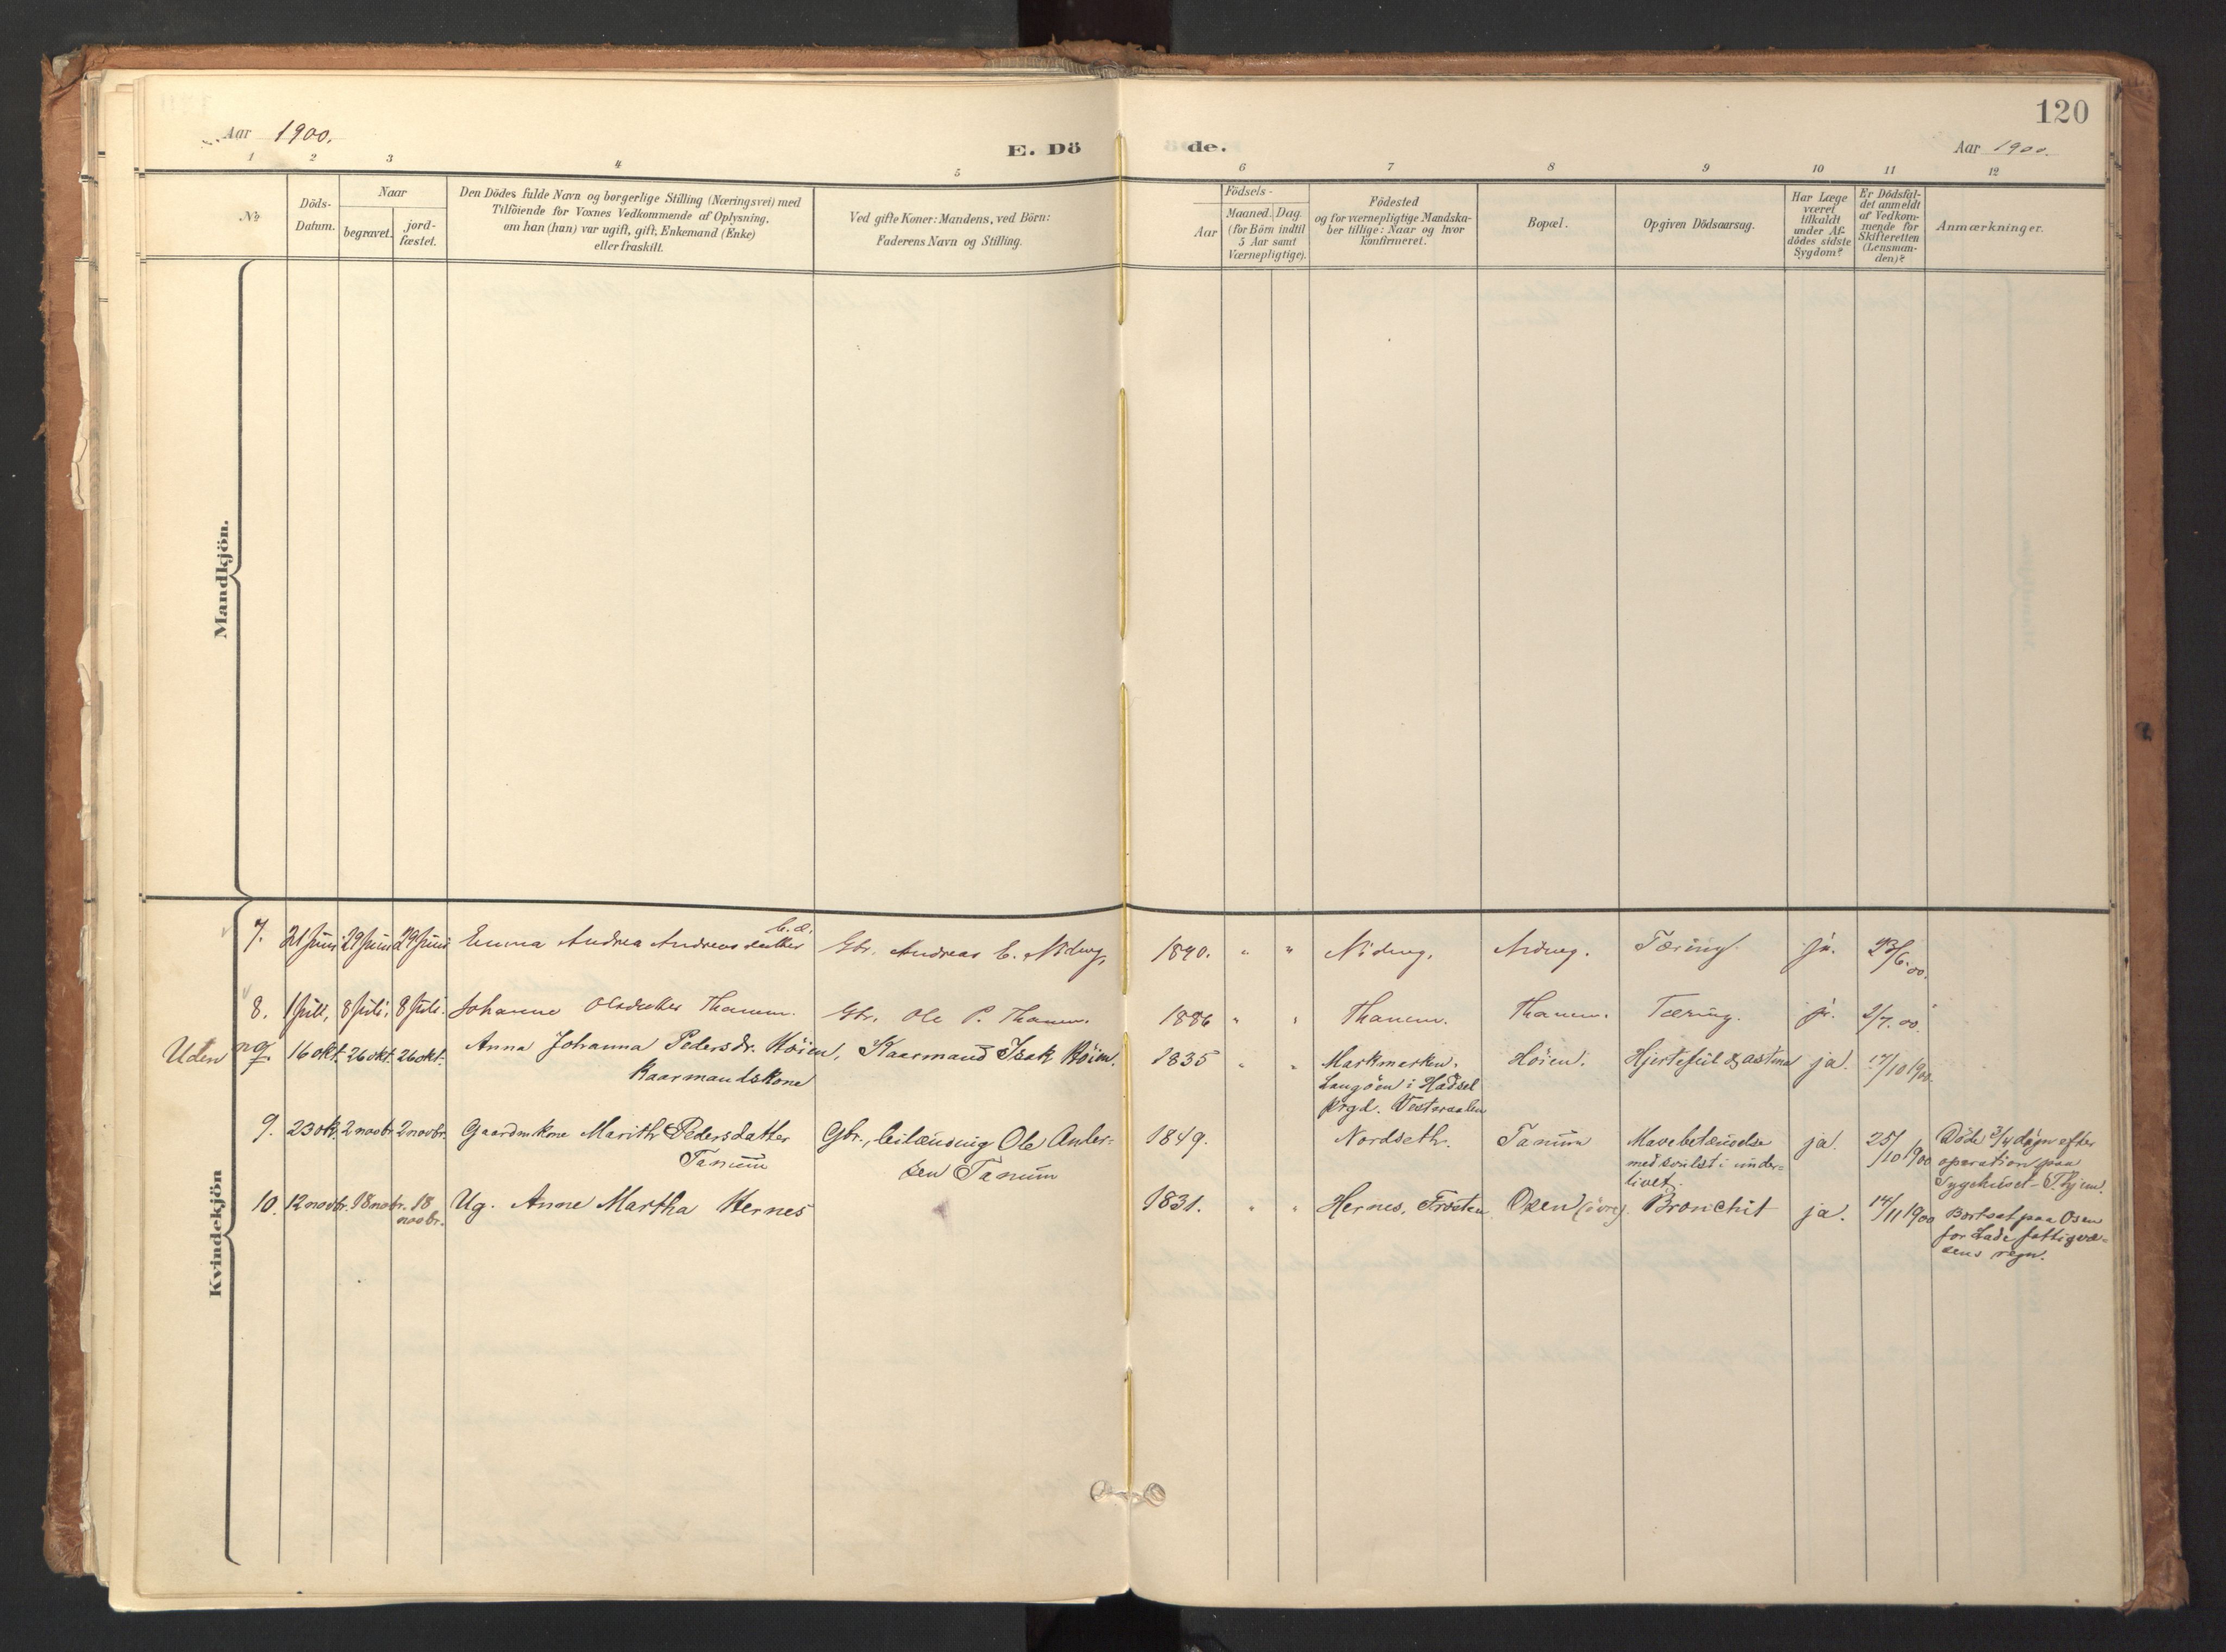 120
Aar 1900.
E. Dö de.
Aar 1900.
1 2 3 4 5 6 7 8 9 10 11 12
No
Döds-
Datum.
Naar
begravet.
jord-
fæstet.
Den Dödes fulde Navn og borgerlige Stilling (Næringsvei) med
Tilföiende for Voxnes Vedkommende af Oplysning,
om han (hun) var ugift, gift, Enkemand (Enke)
eller fraskilt.
Ved gifte Koner: Mandens, ved Börn:
Faderens Navn og Stilling.
Födsels-
Aar
Maaned. Dag
(for Börn indtil
5 Aar samt
Værnepligtige).
Födested
og for værnepligtige Mandska-
ber tillige: Naar og hvor
konfirmeret.
Bopæl.
Opgiven Dödsaarsag.
Har Læge
været
tilkaldt
under Af-
dödes sidste
Sygdom?
Er Dödsfal-
det anmeldt
af Vedkom-
mende for
Skifteretten
(Lensman-
den)?
Anmærkninger.
Mandkjön.
Kvindekjön
7. 21 Juni 29 Juni 29 Juni Emma Andrea Andreasdatter Gbr. Andreas E. 1890. " " Tæring. ja. 23/6.00.
8. 1 Juli, 8 Juli. 8 Juli. Johanne Olsdatter Thanem. Gbr. Ole P. Thanem. 1886 " " Thanem. Thanem. Tæring. ja. 2/7.00.
Uden no. 16 okt. 26 okt. 26 okt. Anna Johanna Pedersdr. Höien, Kaarmand Isak Höien. 1835 " " Markmarken. Höien. Hjertefeil & astma ja. 17/10 1900.
Kaarmandskone
Langöen i Hadsel
prgd. Vesteraalen
9. 23 okt. 2 novbr. 2 novbr. Gaardmkone Marith Pedersdatter Gbr., leilænding Ole Ander-
Tanum
sen Tanum
1849. Nordseth. Tanum Mavebetændelse
med svulst i under-
livet.
ja. 25/10 1900
Döde 3/4 døgn efter
operation paa
Sygehuset - Thjem.
10. 12 novbr. 18 novbr. 18
novbr.
Ug. Anne Martha Hernes 1831. " " Hernes, Frosten Osen (övre). Bronchit ja. 14/11 1900
Bortsat paa Osen
for Lade fattigvæ-
sens regn.